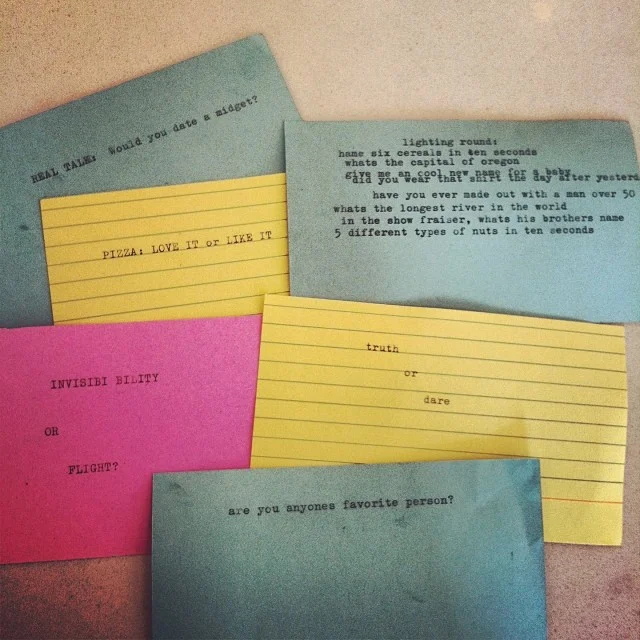 REAL TALK: Would you date a midget?
lighting round:
name six cereals in ten seconds
whats the capital of oregon
give me an cool new name for a baby
did you wear that shirt the day after yesterd
have you ever made out with a man over 50
whats the longest river in the world
in the show fraiser, whats his brothers name
5 different types of nuts in ten seconds
PIZZA: LOVE IT or LIKE IT
INVISIBI BILITY
OR
FLIGHT?
truth
or
dare
are you anyones favorite person?